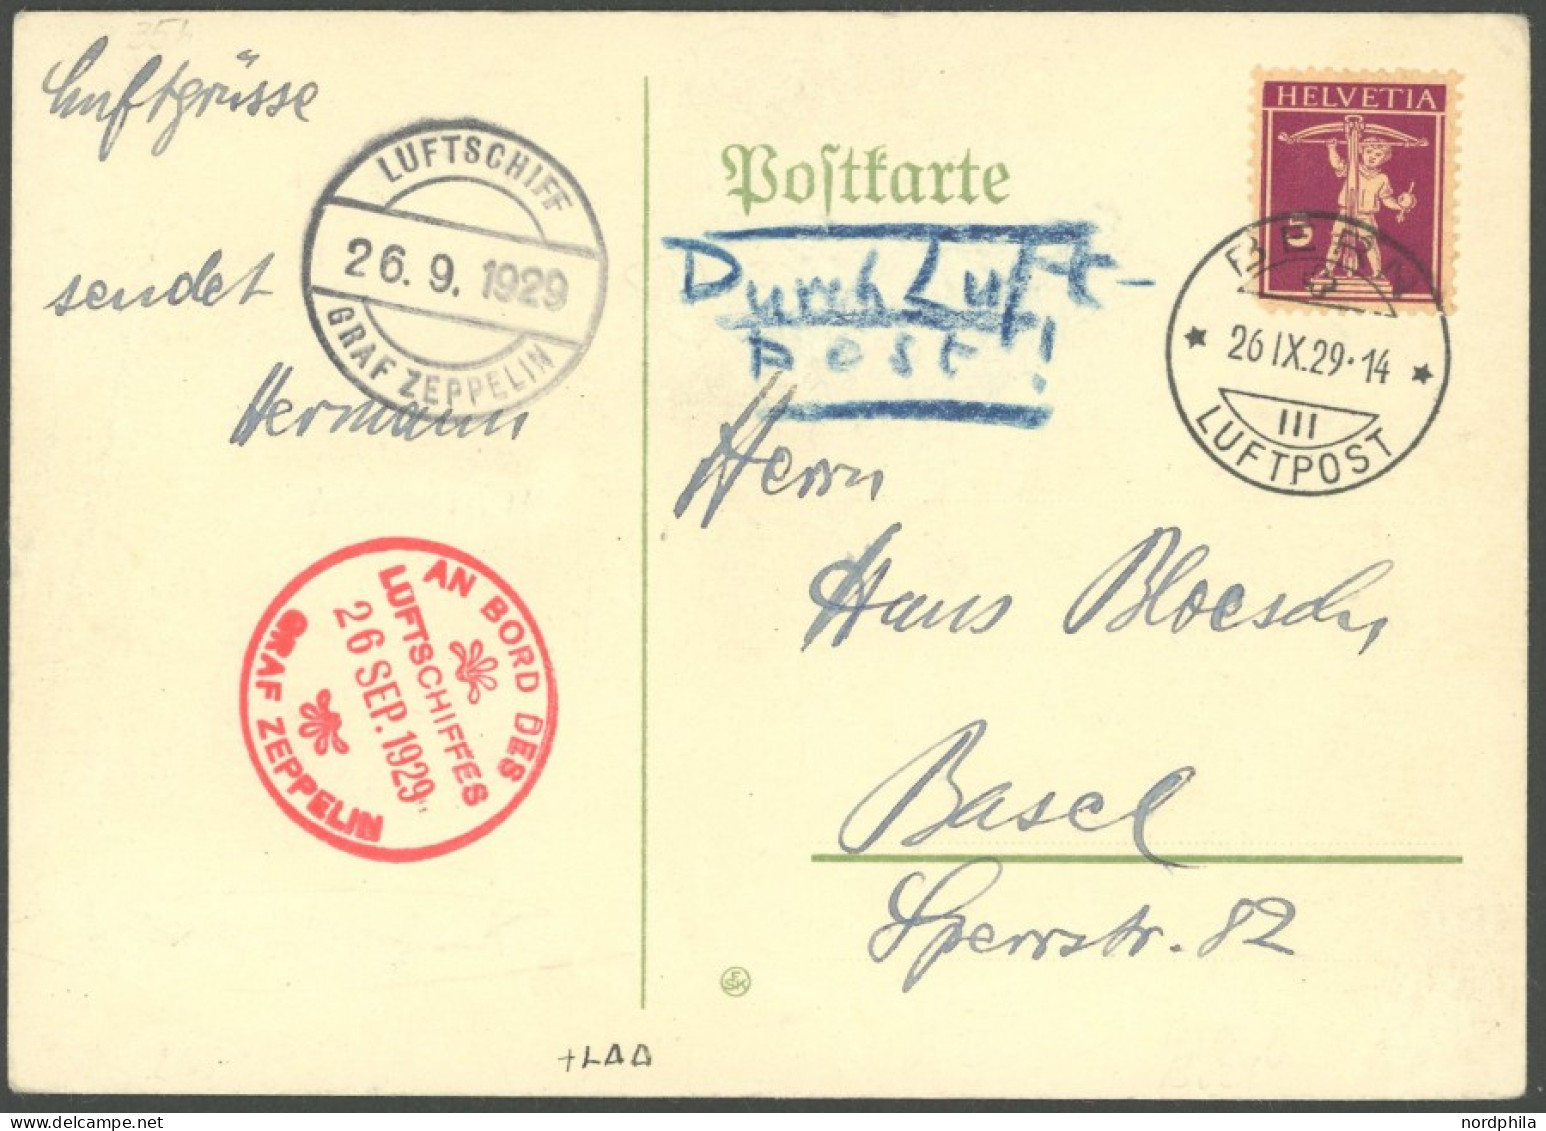 Luftgrüsse
sendet
Hermann
LUFTSCHIFF
26.9. 1929
GRAF ZEPPELIN
AN BORD DES
LUFTSCHIFFES
26 SEP. 1929
GRAF ZEPPELIN
Postkarte
Durch Luft-
post!
HELVETIA
5
BERN
26 IX.29·14
III
LUFTPOST
Herrn
Hans Bloesch,
Basel
Sperrstr. 82
FSK
+LΔΔ
www.nordphila.de